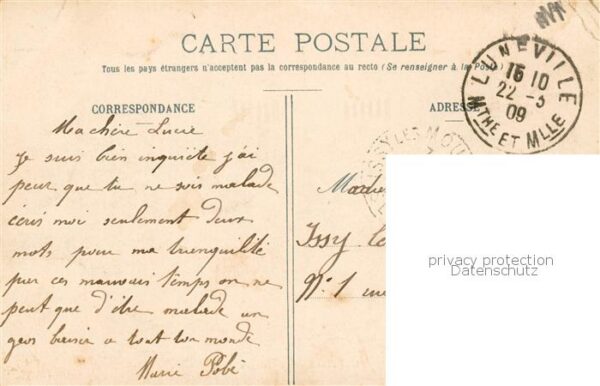 CARTE POSTALE
Tous les pays étrangers n'acceptent pas la correspondance au recto (Se renseigner à la Poste)
CORRESPONDANCE
ADRESSE
LUNEVILLE
16 10
22 - 3
09
MTHE ET MLLE
ISSY LES MOU
Ma chère Lucie
Je suis bien inquiète j'ai
peur que tu ne sois malade
écris moi seulement deux
mots pour ma tranquilité
par ces mauvais temps on ne
peut que d'être malade un
gros baiser a tout ton monde
Marie
Issy le
N° 1
privacy protection
Datenschutz